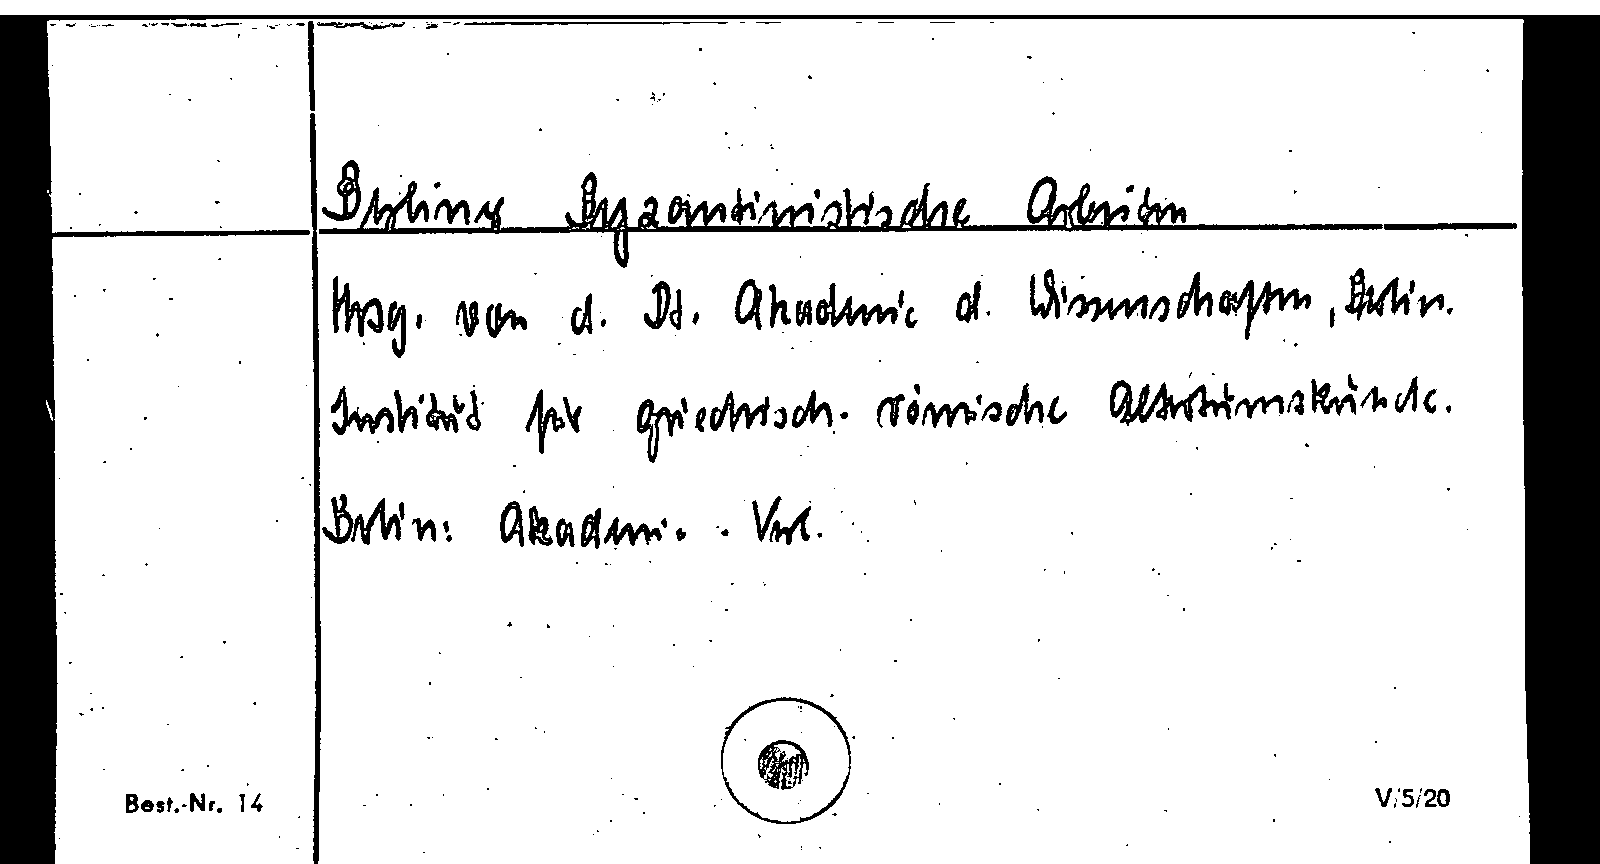 Berliner Byzantinistische Arbeiten
Hrsg. von d. Dt. Akademie d. Wissenschaften, Berlin.
Institut für griechisch-römische Altertumskunde.
Berlin: Akademie-Verl.
Best.-Nr. 14
V/5/20